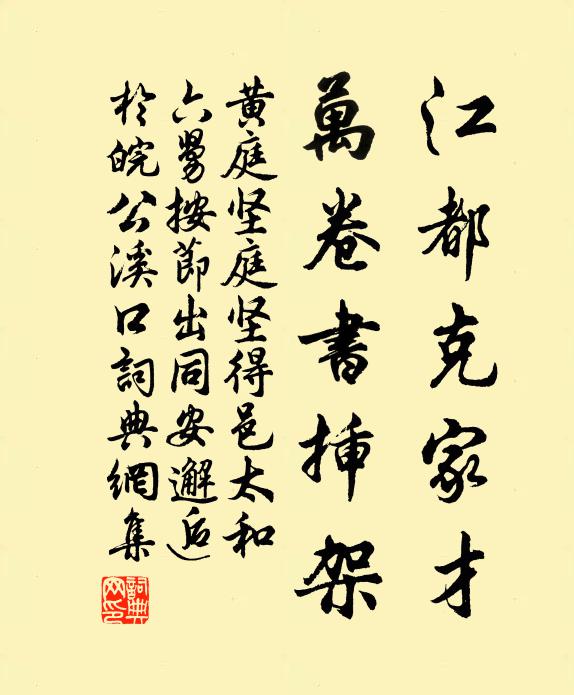 江都克家才
萬卷書挿架
黄庭坚庭坚得邑太和
六舅按節出同安邂逅
於皖公溪口詞典網集
詞典
网印